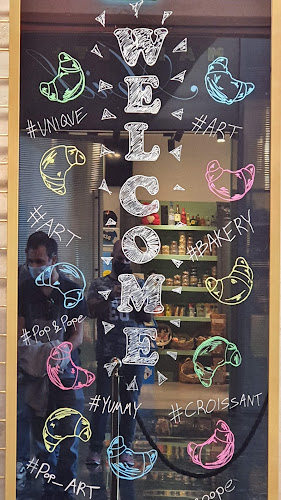 WELCOME
#UNIQUE
#ART
#ART
#BAKERY
#Pop&Pope
#YUMMY
#CROISSANT
#Pop_ART